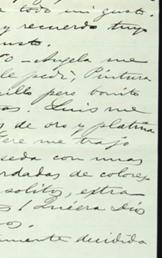 todo mi gusto.
y recuerdo tuyo
gusto.
Angela me
le pedí, Pintura
illo pero bonito
as. Luis me
s de oro y platina
ere me trajo
eda con unas
rdadas de colores
solitos, extra
s ! Quiera Dios
os.
mente decidida